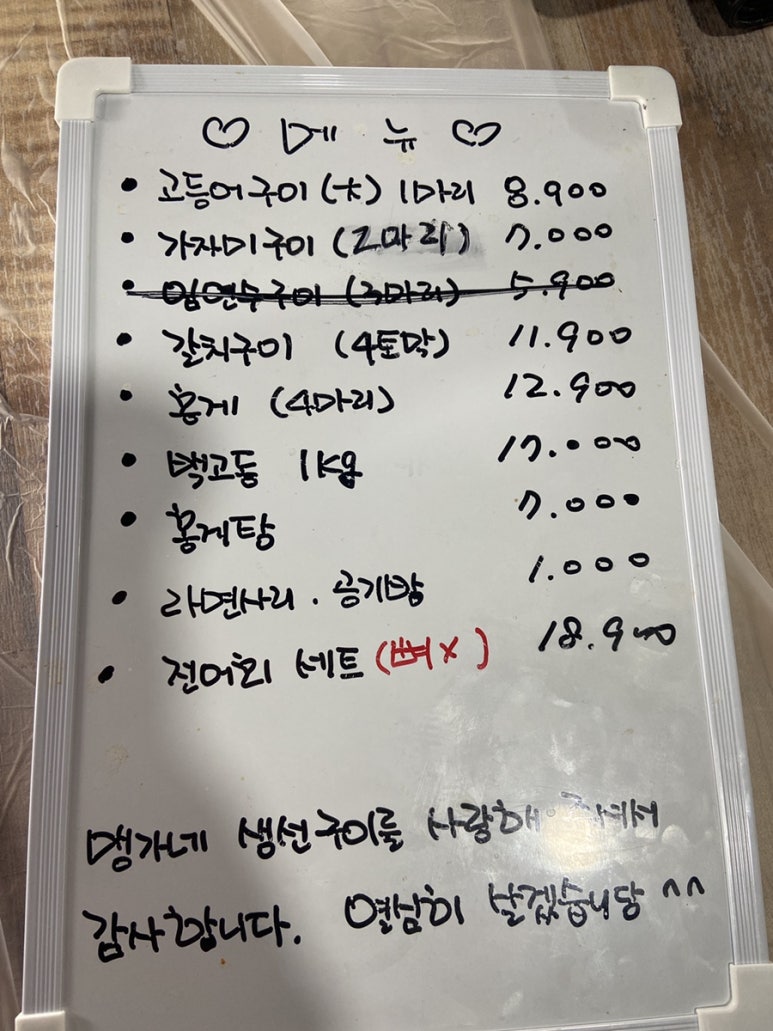 ♡ 메 뉴 ♡
• 고등어구이 (大) 1마리 8.900
• 가자미구이 (2마리) 7.000
• 임연수구이 (3마리) 5.900
• 갈치구이 (4토막) 11.900
• 홍게 (4마리) 12.900
• 백고동 1kg 17.000
• 홍게탕 7.000
• 라면사리 . 공기밥 1.000
• 전어회 세트 (뼈x) 18.900
맹가네 생선구이를 사랑해 주셔서
감사합니다. 열심히 살겠습니당 ^^